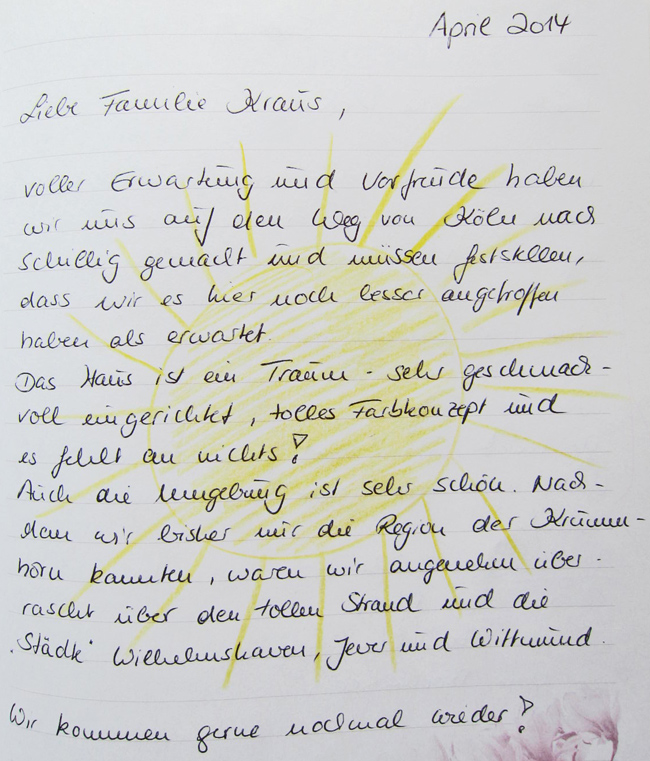 April 2014
Liebe Familie Kraus,
voller Erwartung und Vorfreude haben
wir uns auf den Weg von Köln nach
Schillig gemacht und müssen feststellen,
dass wir es hier noch besser angetroffen
haben als erwartet.
Das Haus ist ein Traum - sehr geschmack-
voll eingerichtet, tolles Farbkonzept und
es fehlt an nichts!
Auch die Umgebung ist sehr schön. Nach-
dem wir bisher nur die Region der Krumm-
hörn kannten, waren wir angenehm über-
rascht über den tollen Strand und die
"Städte" Wilhelmshaven, Jever und Wittmund.
Wir kommen gerne nochmal wieder!